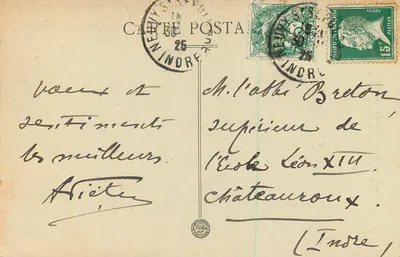 CARTE POSTALE
NEUVY-ST-SÉP
25
INDRE
15c
vœux et
sentiments
les meilleurs.
M. l'abbé Breton,
supérieur de
l'École Léon XIII
Châteauroux.
(Indre)